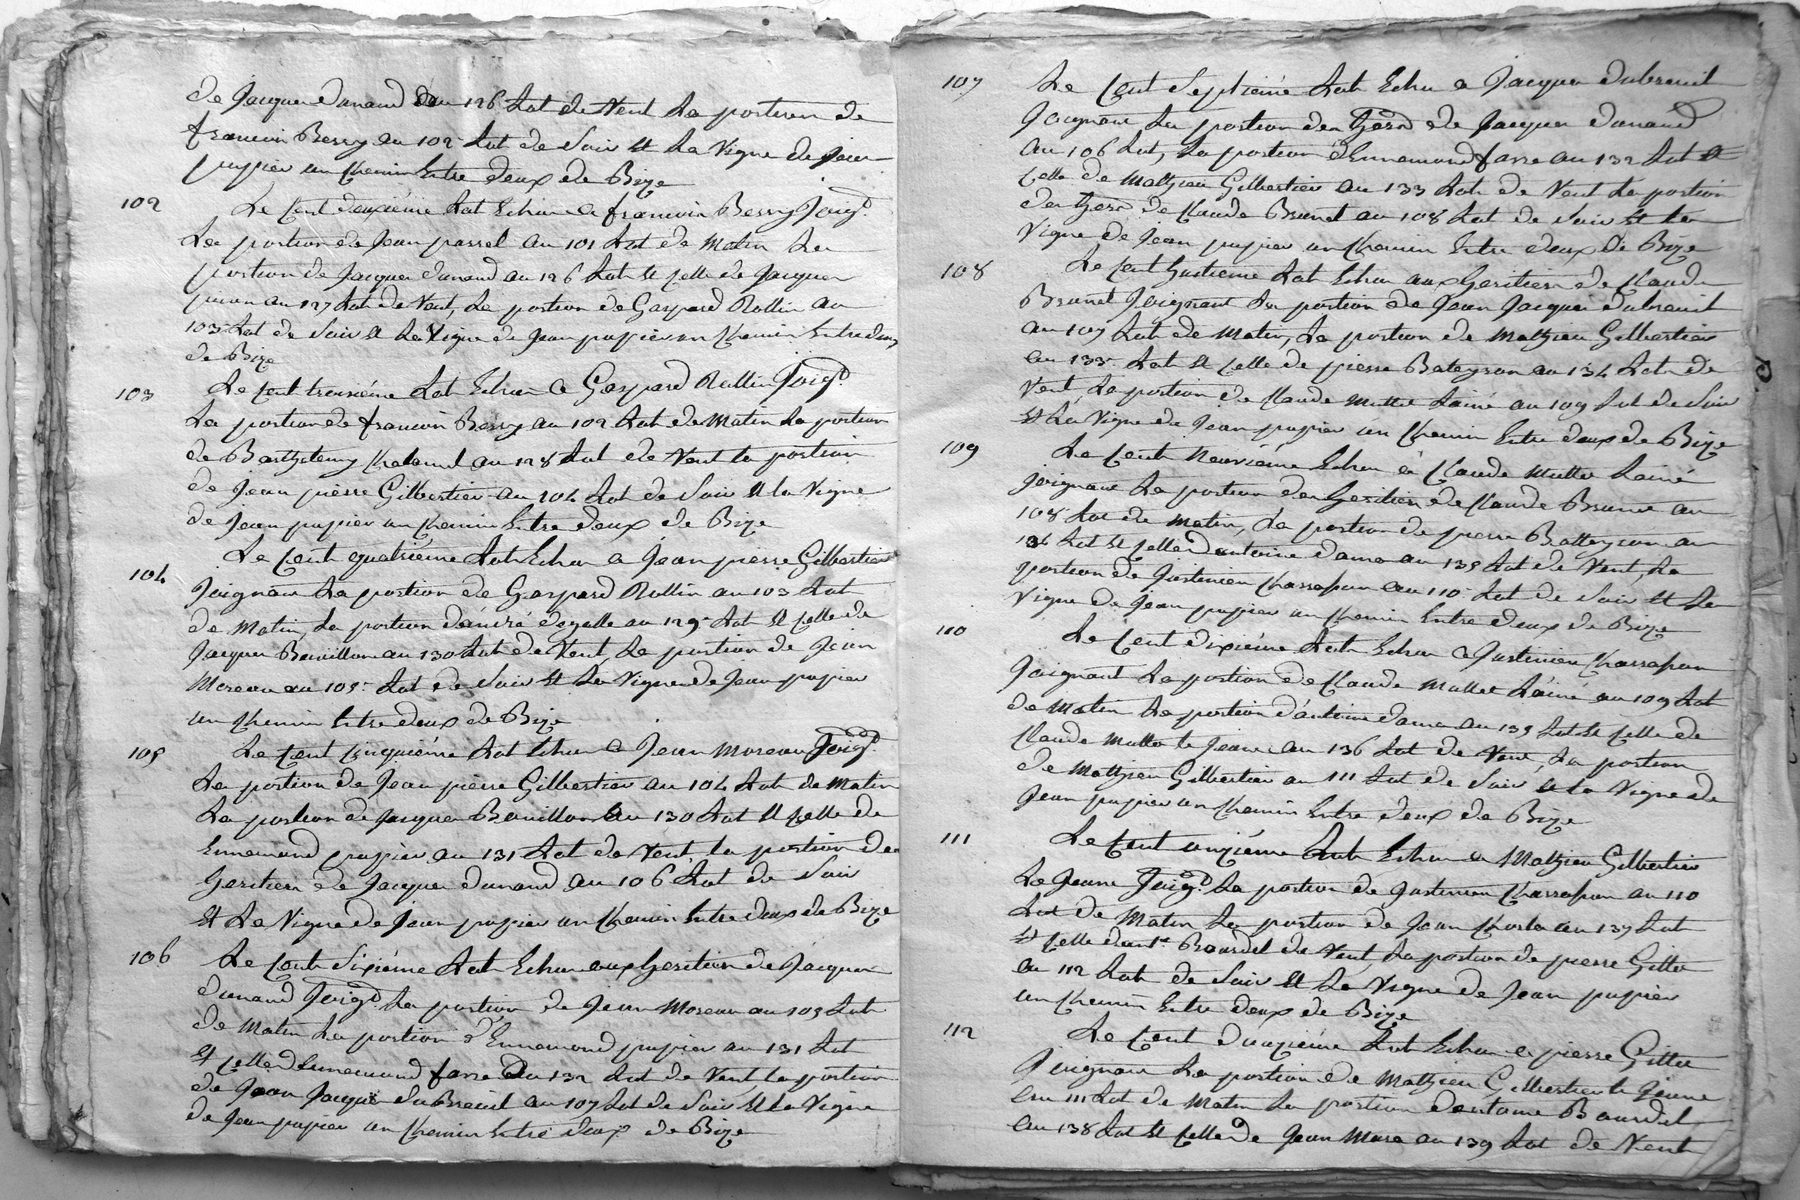 de Jacques dunand au 126 Lot de Vent La portion de
francois Berry au 102 Lot de Soir et La Vigne de Jean
pupier un Chemin Entre deux de Bize
102 Le Cent deuxiéme Lot Echu a francois Berry Joigt
La portion de Jean passel au 101 Lot de Matin La
portion de Jacques dunand au 126 Lot et Celle de Jacques
au 127 Lot de Vent, La portion de Gaspard Rollin au
103 Lot de Soir et La Vigne de Jean pupier un Chemin Entre deux
de Bize
103 Le Cent troisiéme Lot Echu a Gaspard Rollin Joigt
La portion de francois Berry au 102 Lot de Matin La portion
de Barthelemy au 128 Lot de Vent la portion
de Jean pierre Gilbertier au 104 Lot de Soir et la Vigne
de Jean pupier un Chemin Entre deux de Bize
104 Le Cent quatriéme Lot Echu a Jean pierre Gilbertier
Joignant La portion de Gaspard Rollin au 103 Lot
de Matin, La portion d'andré au 129 Lot et Celle de
Jacques Bouillon au 130 Lot de Vent, La portion de Jean
Moreau au 105 Lot de Soir et La Vigne de Jean pupier
un Chemin Entre deux de Bize
105 Le Cent Cinquiéme Lot Echu a Jean Moreau Joigt
La portion de Jean pierre Gilbertier au 104 Lot de Matin
La portion de Jacques Bouillon au 130 Lot et Celle de
Ennemond pupier au 131 Lot de Vent, la portion des
heritiers de Jacques dunand au 106 Lot de Soir
et La Vigne de Jean pupier un Chemin Entre deux de Bize
106 Le Cent Sixiéme Lot Echu aux heritiers de Jacques
dunand Joigt La portion de Jean Moreau au 105 Lot
de Matin La portion d'Ennemond pupier au 131 Lot
et Celle d'Ennemond farre au 132 Lot de Vent la portion
de Jean Jacques du Breuil au 107 Lot de Soir et La Vigne
de Jean pupier un Chemin Entre deux de Bize
107 Le Cent Septiéme Lot Echu a Jacques dubreuil
Joignant La portion des hers de Jacques dunand
au 106 Lot, La portion d'Ennemond farre au 132 Lot et
Celle de Mathieu Gilbertier au 133 Lot de Vent La portion
des hers de Claude Brunet au 108 Lot de Soir et La
Vigne de Jean pupier un Chemin Entre deux de Bize
108 Le Cent huitieme Lot Echu aux heritiers de Claude
Brunet Joignant La portion de Jean Jacques dubreuil
au 107 Lot de Matin, La portion de Mathieu Gilbertier
au 133 Lot et Celle de pierre Bateyron au 134 Lot de
Vent, La portion de Claude Mullet Lainé au 109 Lot de Soir
et La Vigne de Jean pupier un Chemin Entre deux de Bize
109 Le Cent Neuviéme Echu à Claude Mullet Lainé
joignant La portion des heritiers de Claude Brunet au
108 Lot de Matin, La portion de pierre Batteyron au
Lot et Celle d'antoine dama au 135 Lot de Vent, La
portion de Justinien au 110 Lot de Soir et La
Vigne de Jean pupier un Chemin Entre deux de Bize
110 Le Cent dixiéme Lot Echu a Justinien
Joignant La portion de Claude Mullet Lainé au 109 Lot
de Matin La portion d'antoine dama au 135 Lot et Celle de
Claude Mullet le Jeune au 136 Lot de Vent, La portion
de Mathieu Gilbertier au 111 Lot de Soir et La Vigne de
Jean pupier un Chemin Entre deux de Bize
111 Le Cent onziéme Lot Echu a Mathieu Gilbertier
Le Jeune Joigt La portion de Justinien au 110
Lot de Matin La portion de Jean au 137 Lot
et Celle d'ant.e Bourdel de Vent, La portion de pierre Gittes
au 112 Lot de Soir et La Vigne de Jean pupier
un Chemin Entre deux de Bize
112 Le Cent douziéme Lot Echu a pierre Gittes
Joignant La portion de Mathieu Gilbertier le Jeune
au 111 Lot de Matin La portion d'antoine Bourdel
au 138 Lot et Celle de Jean Mure au 139 Lot de Vent